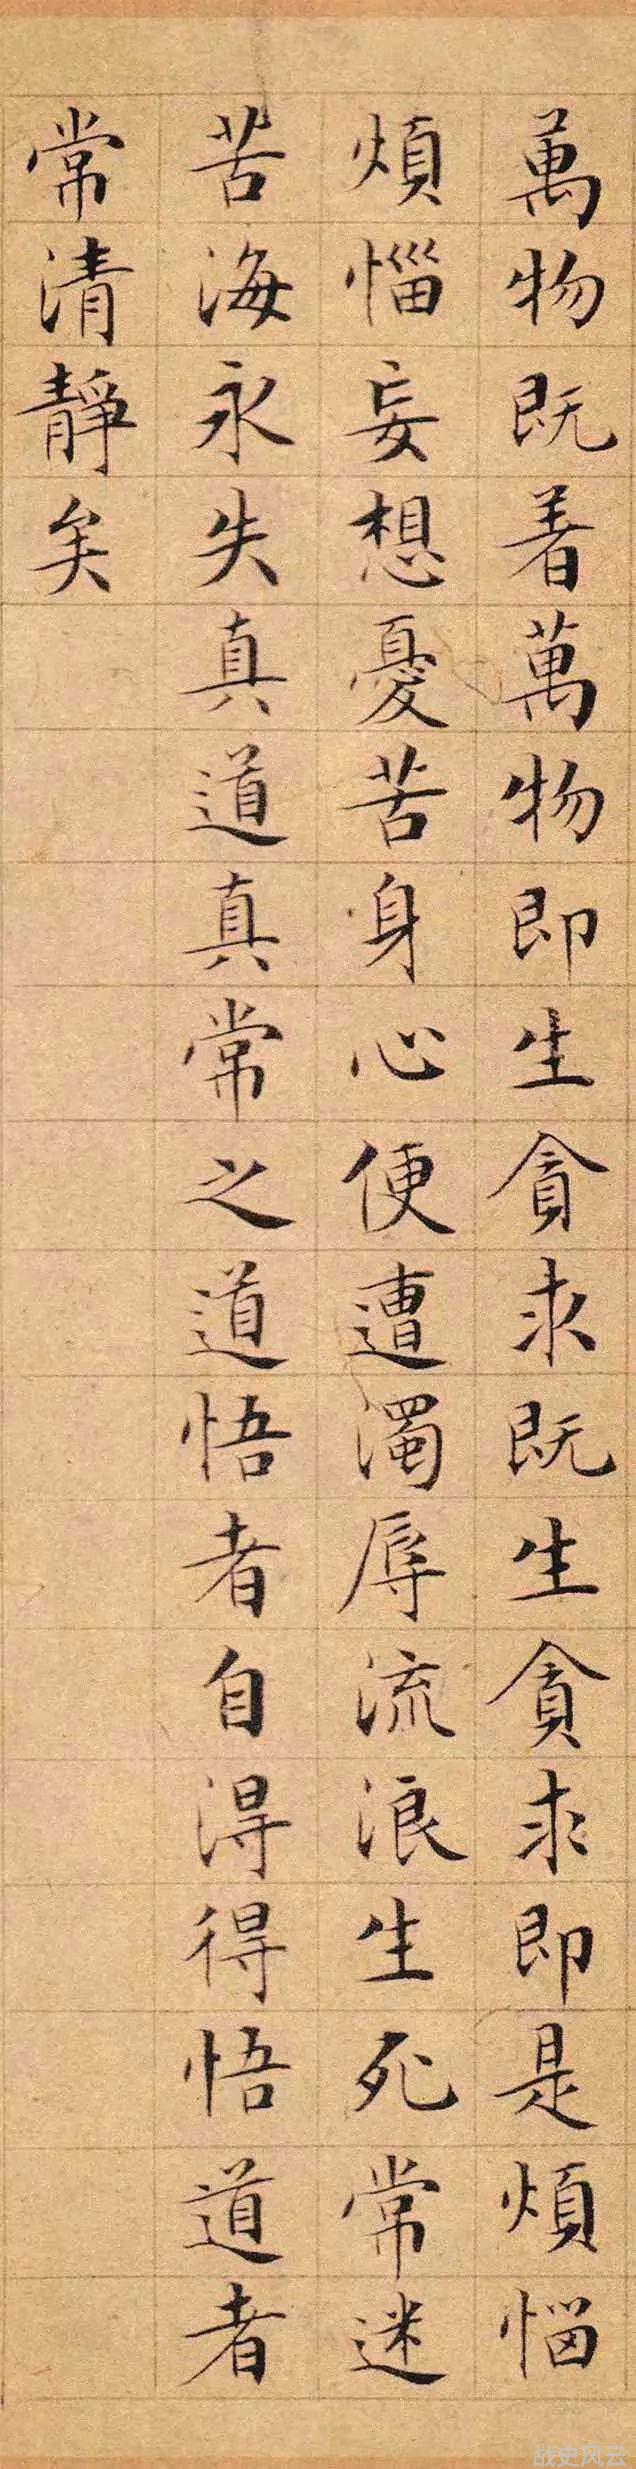 萬物既着萬物即生貪求既生貪求即是煩惱
煩惱妄想憂苦身心便遭濁辱流浪生死常迷
苦海永失真道真常之道悟者自得得悟道者
常清靜矣
战史风云